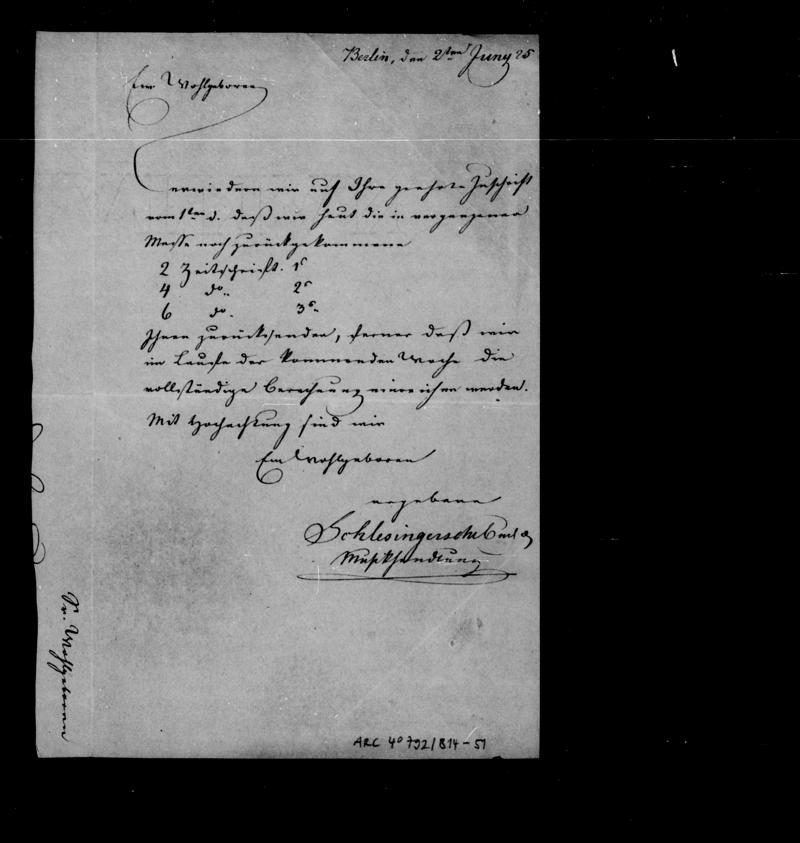 Berlin, den 2ten Juny 25
Ew Wohlgeboren
erwiedern wir auf Ihre geehrte Zuschrift
vom 1ten d. daß wir heut die in vergangener
Messe noch zurückgekommene
2 Zeitschrift. 1s
4 do. 2s
6 do. 3s
Ihnen zurücksenden, ferner daß wir
im Laufe der kommenden Woche die
vollständige Berechnung einreichen werden.
Mit Hochachtung sind wir
Ew Wohlgeboren
ergebene
Schlesingersche Buch &
Musikhandlung
Sr. Wohlgeboren
ARC 4o 792/B14-51